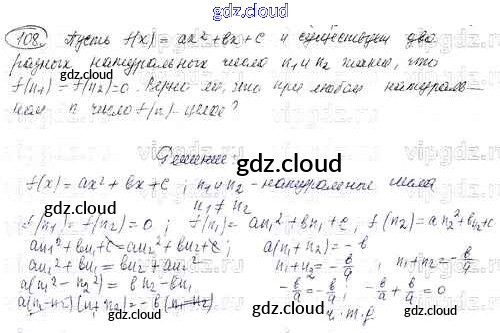 gdz.cloud
108. Пусть f(x) = ax² + bx + c и существуют два
разных натуральных числа n₁ и n₂ такие, что
f(n₁) = f(n₂) = 0. Верно ли, что при любом натураль-
ном n число f(n) - целое?
gdz.cloud
Решение:
gdz.cloud
f(x) = ax² + bx + c ; n₁ и n₂ - натуральные числа
n₁ ≠ n₂
f(n₁) = f(n₂) = 0 ; f(n₁) = an₁² + bn₁ + c, f(n₂) = an₂² + bn₂ + c
an₁² + bn₁ + c = an₂² + bn₂ + c ; a(n₁ + n₂) = -b
an₁² + bn₁ = bn₂ + an₂² n₁ + n₂ = -b/a ; n₁ + n₂ = -b/a
a(n₁² - n₂²) = bn₂ - bn₁ -b/a = -b/a ; -b/a + b/a = 0
a(n₁ - n₂)(n₁ + n₂) = -b(n₁ - n₂) ч.т.д.
gdz.cloud